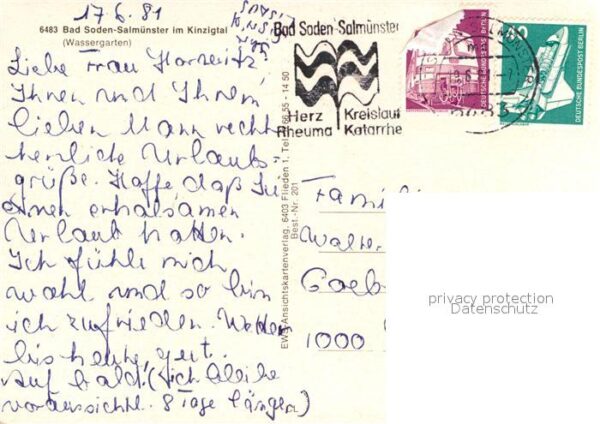 17.6.81
6483 Bad Soden-Salmünster im Kinzigtal
(Wassergarten)
Liebe Frau
Ihnen und Ihrem
lieben Mann recht
herzliche Urlaubs-
grüße. Hoffe daß Sie
einen erholsamen
Urlaub hatten.
Ich fühle mich
wohl und so bin
ich zufrieden. Wetter
bis heute, gut.
Auf bald! (Ich bleibe
voraussichtl. 8 Tage länger)
Bad Soden-Salmünster
Herz Kreislauf
Rheuma Katarrhe
DEUTSCHE BUNDESPOST BERLIN
DEUTSCHE BUNDESPOST BERLIN
EWK Ansichtskartenverlag, 6403 Flieden 1, Tel. 066 55 - 14 50
Best.-Nr. 201
Famili
Walter
Goeb
1000
privacy protection
Datenschutz